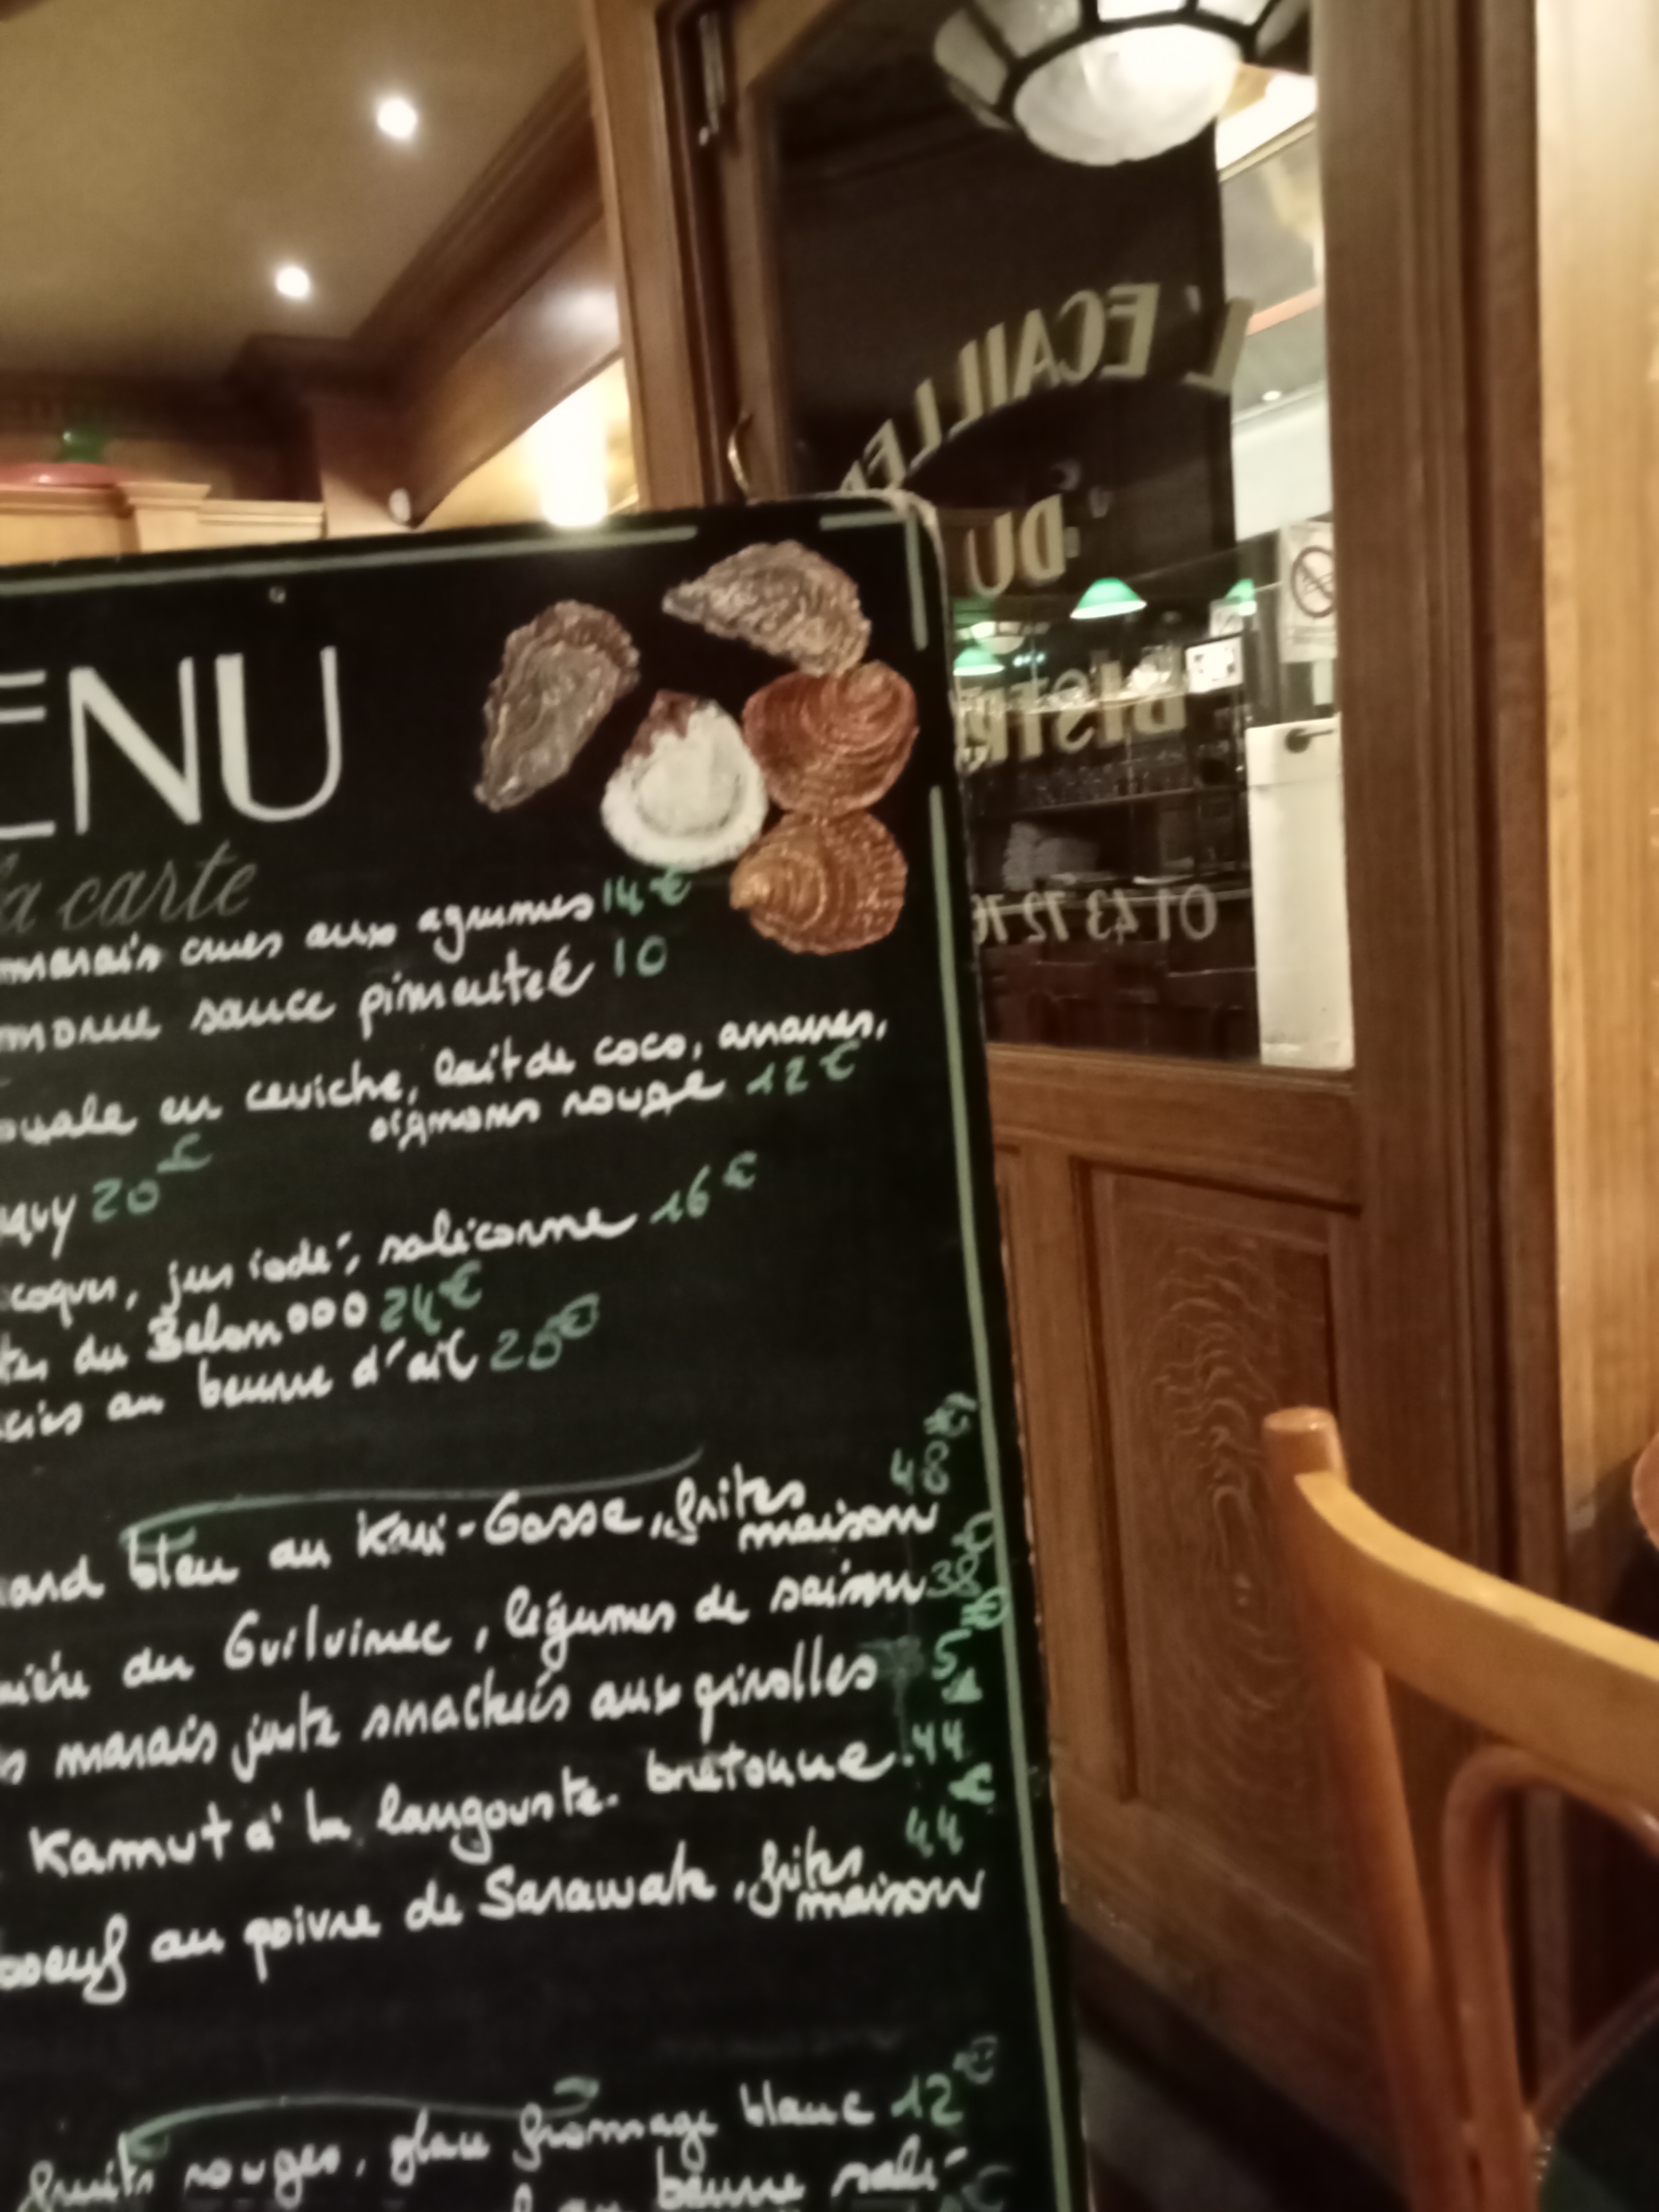 L'ECAILLE
DU
BISTR
01 43 72 76
ENU
la carte
marais crues aux agrumes 14 €
morue sauce pimenteé 10
en ceviche, lait de coco, ananas,
oignons rouge 12 €
20 €
coques, jus iodé, salicorne 16 €
du Belon 000 24 €
au beurre d'ail 25 €
48 €
bleu au Kari-Gosse, frites
maison
du Guilvinec, légumes de saison 38 €
marais juste snackeés aux girolles
Kamut à la langouste bretonne 44
44 €
boeuf au poivre de Sarawak, frites
maison
fruits rouges, glace fromage blanc 12 €
au beurre salé